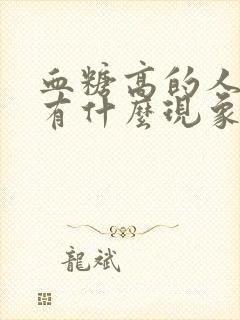 血糖高的人
有什麼現象
龍斌